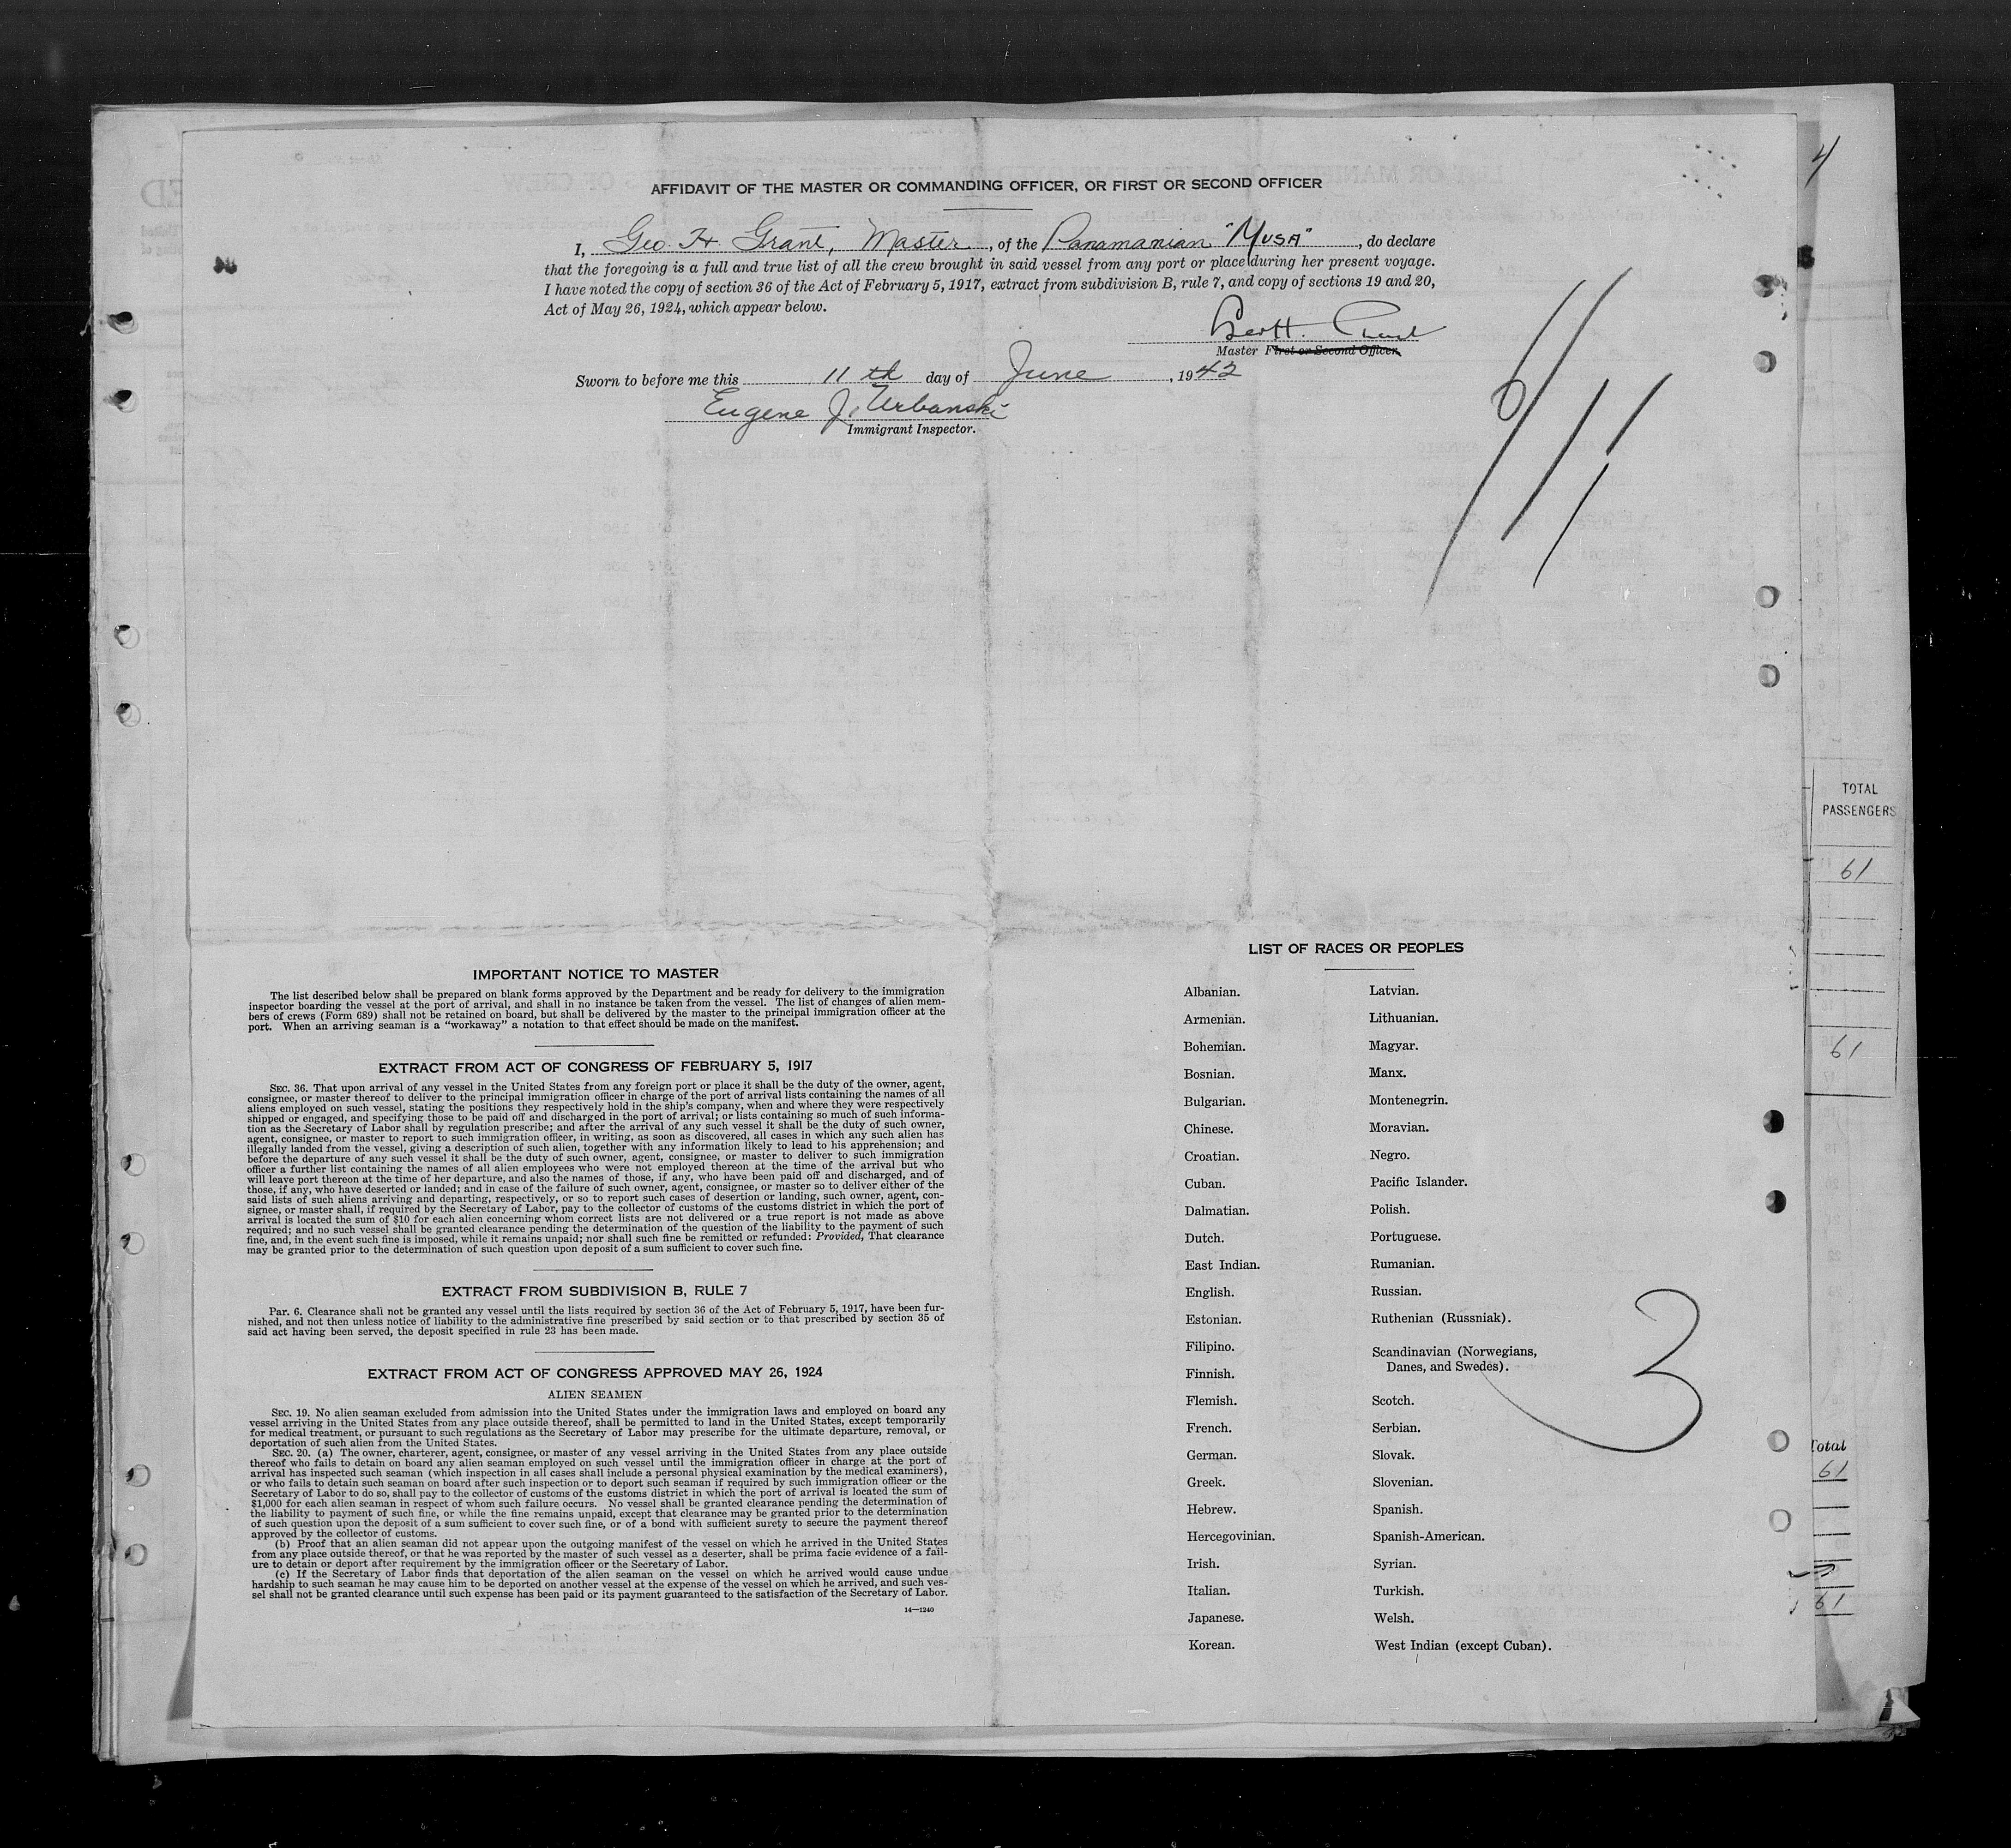 4
AFFIDAVIT OF THE MASTER OR COMMANDING OFFICER, OR FIRST OR SECOND OFFICER
I, Geo. H. Grant, Master, of the Panamanian "MUSA", do declare
that the foregoing is a full and true list of all the crew brought in said vessel from any port or place during her present voyage.
I have noted the copy of section 36 of the Act of February 5, 1917, extract from subdivision B, rule 7, and copy of sections 19 and 20,
Act of May 26, 1924, which appear below.
Master First or Second Officer.
Sworn to before me this 11th day of June, 1942
Eugene J. Urbanski
Immigrant Inspector.
6/11/
TOTAL
PASSENGERS
61
61
IMPORTANT NOTICE TO MASTER
The list described below shall be prepared on blank forms approved by the Department and be ready for delivery to the immigration
inspector boarding the vessel at the port of arrival, and shall in no instance be taken from the vessel. The list of changes of alien mem-
bers of crews (Form 689) shall not be retained on board, but shall be delivered by the master to the principal immigration officer at the
port. When an arriving seaman is a "workaway" a notation to that effect should be made on the manifest.
EXTRACT FROM ACT OF CONGRESS OF FEBRUARY 5, 1917
SEC. 36. That upon arrival of any vessel in the United States from any foreign port or place it shall be the duty of the owner, agent,
consignee, or master thereof to deliver to the principal immigration officer in charge of the port of arrival lists containing the names of all
aliens employed on such vessel, stating the positions they respectively hold in the ship's company, when and where they were respectively
shipped or engaged, and specifying those to be paid off and discharged in the port of arrival; or lists containing so much of such informa-
tion as the Secretary of Labor shall by regulation prescribe; and after the arrival of any such vessel it shall be the duty of such owner,
agent, consignee, or master to report to such immigration officer, in writing, as soon as discovered, all cases in which any such alien has
illegally landed from the vessel, giving a description of such alien, together with any information likely to lead to his apprehension; and
before the departure of any such vessel it shall be the duty of such owner, agent, consignee, or master to deliver to such immigration
officer a further list containing the names of all alien employees who were not employed thereon at the time of the arrival but who
will leave port thereon at the time of her departure, and also the names of those, if any, who have been paid off and discharged, and of
those, if any, who have deserted or landed; and in case of the failure of such owner, agent, consignee, or master so to deliver either of the
said lists of such aliens arriving and departing, respectively, or so to report such cases of desertion or landing, such owner, agent, con-
signee, or master shall, if required by the Secretary of Labor, pay to the collector of customs of the customs district in which the port of
arrival is located the sum of $10 for each alien concerning whom correct lists are not delivered or a true report is not made as above
required; and no such vessel shall be granted clearance pending the determination of the question of the liability to the payment of such
fine, and, in the event such fine is imposed, while it remains unpaid; nor shall such fine be remitted or refunded: Provided, That clearance
may be granted prior to the determination of such question upon deposit of a sum sufficient to cover such fine.
EXTRACT FROM SUBDIVISION B, RULE 7
Par. 6. Clearance shall not be granted any vessel until the lists required by section 36 of the Act of February 5, 1917, have been fur-
nished, and not then unless notice of liability to the administrative fine prescribed by said section or to that prescribed by section 35 of
said act having been served, the deposit specified in rule 23 has been made.
EXTRACT FROM ACT OF CONGRESS APPROVED MAY 26, 1924
ALIEN SEAMEN
SEC. 19. No alien seaman excluded from admission into the United States under the immigration laws and employed on board any
vessel arriving in the United States from any place outside thereof, shall be permitted to land in the United States, except temporarily
for medical treatment, or pursuant to such regulations as the Secretary of Labor may prescribe for the ultimate departure, removal, or
deportation of such alien from the United States.
SEC. 20. (a) The owner, charterer, agent, consignee, or master of any vessel arriving in the United States from any place outside
thereof who fails to detain on board any alien seaman employed on such vessel until the immigration officer in charge at the port of
arrival has inspected such seaman (which inspection in all cases shall include a personal physical examination by the medical examiners),
or who fails to detain such seaman on board after such inspection or to deport such seaman if required by such immigration officer or the
Secretary of Labor to do so, shall pay to the collector of customs of the customs district in which the port of arrival is located the sum of
$1,000 for each alien seaman in respect of whom such failure occurs. No vessel shall be granted clearance pending the determination of
the liability to the payment of such fine, or while the fine remains unpaid, except that clearance may be granted prior to the determination
of such question upon the deposit of a sum sufficient to cover such fine, or of a bond with sufficient surety to secure the payment thereof
approved by the collector of customs.
(b) Proof that an alien seaman did not appear upon the outgoing manifest of the vessel on which he arrived in the United States
from any place outside thereof, or that he was reported by the master of such vessel as a deserter, shall be prima facie evidence of a fail-
ure to detain or deport after requirement by the immigration officer or the Secretary of Labor.
(c) If the Secretary of Labor finds that deportation of the alien seaman on the vessel on which he arrived would cause undue
hardship to such seaman he may cause him to be deported on another vessel at the expense of the vessel on which he arrived, and such ves-
sel shall not be granted clearance until such expense has been paid or its payment guaranteed to the satisfaction of the Secretary of Labor.
14—1240
LIST OF RACES OR PEOPLES
Albanian.
Armenian.
Bohemian.
Bosnian.
Bulgarian.
Chinese.
Croatian.
Cuban.
Dalmatian.
Dutch.
East Indian.
English.
Estonian.
Filipino.
Finnish.
Flemish.
French.
German.
Greek.
Hebrew.
Hercegovinian.
Irish.
Italian.
Japanese.
Korean.
Latvian.
Lithuanian.
Magyar.
Manx.
Montenegrin.
Moravian.
Negro.
Pacific Islander.
Polish.
Portuguese.
Rumanian.
Russian.
Ruthenian (Russniak).
Scandinavian (Norwegians,
Danes, and Swedes).
Scotch.
Serbian.
Slovak.
Slovenian.
Spanish.
Spanish-American.
Syrian.
Turkish.
Welsh.
West Indian (except Cuban).
3
Total
61
61